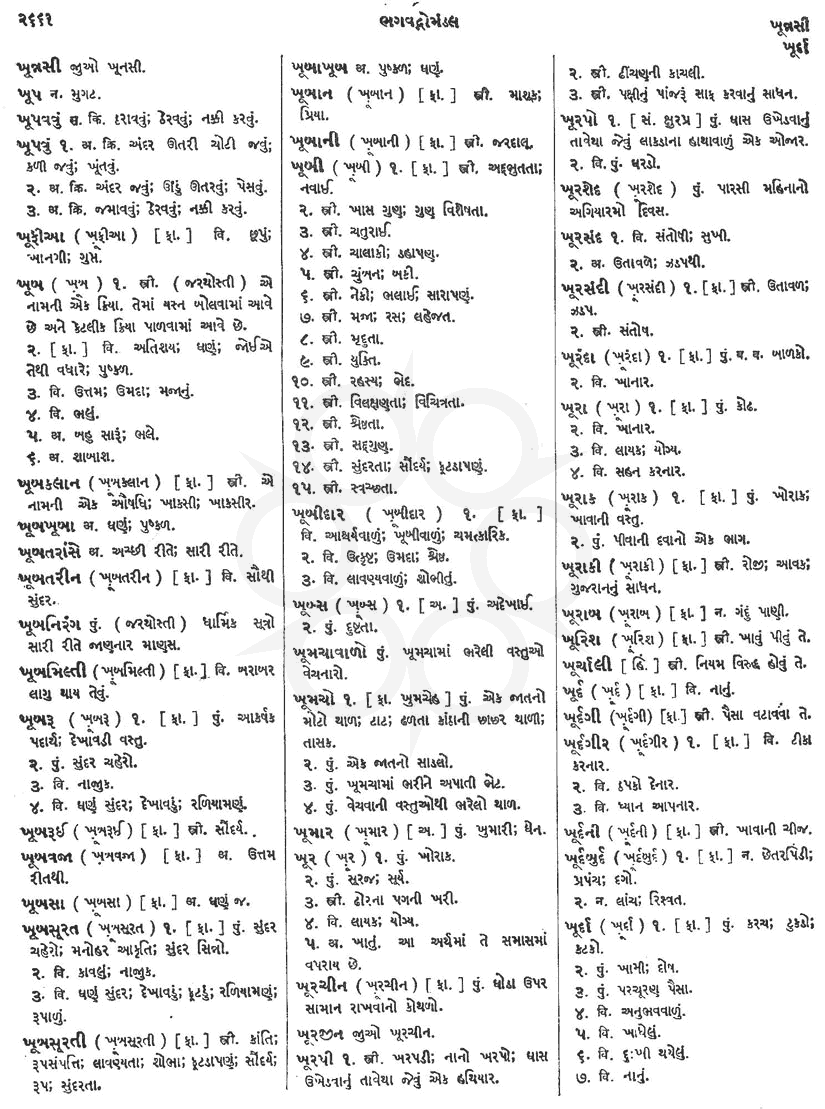 ૨૬૬૧
ભગવદ્ગોમંડલ
ખૂન્નસી
ખૂર્દા
ખૂન્નસી જુઓ ખૂનસી.
ખૂપ ન. મુગટ.
ખૂપવવું સ. ક્રિ. ઠરાવવું; ઠેરવવું; નક્કી કરવું.
ખૂપવું ૧. અ. ક્રિ. અંદર ઊતરી ચોટી જવું;
કળી જવું; ખૂંતવું.
૨. અ. ક્રિ. અંદર જવું; ઊંડું ઊતરવું; પેસવું.
૩. અ. ક્રિ. જમાવવું; ઠેરવવું; નક્કી કરવું.
ખૂફીઆ ( ખ઼ૂફીઆ ) [ ફા. ] વિ. છૂપું;
ખાનગી; ગુપ્ત.
ખૂબ ( ખ઼ૂબ ) ૧. સ્ત્રી. ( જરથોસ્તી ) એ
નામની એક ક્રિયા. તેમાં યસ્ન બોલવામાં આવે
છે અને કેટલીક ક્રિયા પાળવામાં આવે છે.
૨. [ ફા. ] વિ. અતિશય; ઘણું; જોઈએ
તેથી વધારે; પુષ્કળ.
૩. વિ. ઉત્તમ; ઉમદા; મજાનું.
૪. વિ. ભલું.
૫. અ. બહુ સારૂં; ભલે.
૬. અ. શાબાશ.
ખૂબકલાન ( ખ઼ૂબકલાન ) [ ફા. ] સ્ત્રી. એ
નામની એક ઔષધિ; ખાકસી; ખાકસીર.
ખૂબખૂબા અ. ઘણું; પુષ્કળ.
ખૂબતરાંસે અ. અચ્છી રીતે; સારી રીતે.
ખૂબતરીન ( ખ઼ૂબતરીન ) [ ફા. ] વિ. સૌથી
સુંદર.
ખૂબનિરંગ પું. ( જરથોસ્તી ) ધાર્મિક સૂત્રો
સારી રીતે જાણનાર માણસ.
ખૂબમિલ્તી ( ખ઼ૂબમિલ્તી ) [ ફા. ] વિ. બરાબર
લાગુ થાય તેવું.
ખૂબરૂ ( ખ઼ૂબરૂ ) ૧. [ ફા. ] પું. આકર્ષક
પદાર્થ; દેખાવડી વસ્તુ.
૨. પું. સુંદર ચહેરો.
૩. વિ. નાજુક.
૪. વિ. ઘણું સુંદર; દેખાવડું; રળિયામણું.
ખૂબરૂઈ ( ખ઼ૂબરૂઈ ) [ ફા. ] સ્ત્રી. સૌંદર્ય.
ખૂબવજા ( ખ઼ૂબવજા ) [ ફા. ] અ. ઉત્તમ
રીતથી.
ખૂબસા ( ખ઼ૂબસા ) [ ફા. ] અ. ઘણું જ.
ખૂબસૂરત ( ખ઼ૂબસૂરત ) ૧. [ ફા. ] પું. સુંદર
ચહેરો; મનોહર આકૃતિ; સુંદર સિન્નો.
૨. વિ. કાવલું; નાજુક.
૩. વિ. ઘણું સુંદર; દેખાવડું; ફૂટડું; રળિયામણું;
રૂપાળું.
ખૂબસૂરતી ( ખ઼ૂબસૂરતી ) [ ફા. ] સ્ત્રી. કાંતિ;
રૂપસંપત્તિ; લાવણ્યતા; શોભા; ફૂટડાપણું; સૌંદર્ય;
રૂપ; સુંદરતા.
ખૂબાખૂબ અ. પુષ્કળ; ઘણું.
ખૂબાન ( ખ઼ૂબાન ) [ ફા. ] સ્ત્રી. માશૂક;
પ્રિયા.
ખૂબાની ( ખ઼ૂબાની ) [ ફા. ] સ્ત્રી. જરદાલૂ.
ખૂબી ( ખ઼ૂબી ) ૧. [ ફા. ] સ્ત્રી. અદ્ભુતતા;
નવાઈ.
૨. સ્ત્રી. ખાસ ગુણ; ગુણ વિશેષતા.
૩. સ્ત્રી. ચતુરાઈ.
૪. સ્ત્રી. ચાલાકી; ડહાપણ.
૫. સ્ત્રી. ચુંબન; બકી.
૬. સ્ત્રી. નેકી; ભલાઈ; સારાપણું.
૭. સ્ત્રી. મજા; રસ; લહેજત.
૮. સ્ત્રી. મૃદુતા.
૯. સ્ત્રી. યુક્તિ.
૧૦. સ્ત્રી. રહસ્ય; ભેદ.
૧૧. સ્ત્રી. વિલક્ષણતા; વિચિત્રતા.
૧૨. સ્ત્રી. શ્રેષ્ઠતા.
૧૩. સ્ત્રી. સદ્ગુણ.
૧૪. સ્ત્રી. સુંદરતા; સૌંદર્ય; ફૂટડાપણું.
૧૫. સ્ત્રી. સ્વચ્છતા.
ખૂબીદાર ( ખ઼ૂબીદાર ) ૧. [ ફા. ]
વિ. આશ્ચર્યવાળું; ખૂબીવાળું; ચમત્કારિક.
૨. વિ. ઉત્કૃષ્ટ; ઉમદા; શ્રેષ્ઠ.
૩. વિ. લાવણ્યવાળું; શોભીતું.
ખૂબ્સ ( ખ઼ૂબ્સ ) ૧. [ અ. ] પું. અદેખાઈ.
૨. પું. દુષ્ટતા.
ખૂમચાવાળો પું. ખૂમચામાં ભરેલી વસ્તુઓ
વેચનારો.
ખૂમચો ૧. [ ફા. ખુમચેહ ] પું. એક જાતનો
મોટો થાળ; ટાટ; ઢળતા કાંઠાની છાછર થાળી;
તાસક.
૨. પું. એક જાતનો સાડલો.
૩. પું. ખૂમચામાં ભરીને અપાતી ભેટ.
૪. પું. વેચવાની વસ્તુઓથી ભરેલો થાળ.
ખૂમાર ( ખ઼ૂમાર ) [ અ. ] પું. ખુમારી; ઘેન.
ખૂર ( ખ઼ૂર ) ૧. પું. ખોરાક.
૨. પું. સૂરજ; સૂર્ય.
૩. સ્ત્રી. ઢોરના પગની ખરી.
૪. વિ. લાયક; યોગ્ય.
૫. અ. ખાતું. આ અર્થમાં તે સમાસમાં
વપરાય છે.
ખૂરચીન ( ખ઼ૂરચીન ) [ ફા. ] પું. ઘોડા ઉપર
સામાન રાખવાનો કોથળો.
ખૂરજીન જુઓ ખૂરચીન.
ખૂરપી ૧. સ્ત્રી. ખરપડી; નાનો ખરપો; ઘાસ
ઉખેડવાનું તાવેથા જેવું એક હથિયાર.
૨. સ્ત્રી. ઢીંચણની કાચલી.
૩. સ્ત્રી. પક્ષીનું પાંજરૂં સાફ કરવાનું સાધન.
ખૂરપો ૧. [ સં. ક્ષુરપ્ર ] પું. ઘાસ ઉખેડવાનું
તાવેથા જેવું લાકડાના હાથાવાળું એક ઓજાર.
૨. વિ. પું. ઘરડો.
ખૂરશેદ ( ખ઼ૂરશેદ ) પું. પારસી મહિનાનો
અગિયારમો દિવસ.
ખૂરસંદ ૧. વિ. સંતોષી; સુખી.
૨. અ. ઉતાવળે; ઝડપથી.
ખૂરસંદી ( ખ઼ૂરસંદી ) ૧. [ ફા. ] સ્ત્રી. ઉતાવળ;
ઝડપ.
૨. સ્ત્રી. સંતોષ.
ખૂરંદા ( ખ઼ૂરંદા ) ૧. [ ફા. ] પું. બ. વ. બાળકો.
૨. વિ. ખાનાર.
ખૂરા ( ખ઼ૂરા ) ૧. [ ફા. ] પું. કોઢ.
૨. વિ. ખાનાર.
૩. વિ. લાયક; યોગ્ય.
૪. વિ. સહન કરનાર.
ખૂરાક ( ખ઼ૂરાક ) ૧. [ ફા. ] પું. ખોરાક;
ખાવાની વસ્તુ.
૨. પું. પીવાની દવાનો એક ભાગ.
ખૂરાકી ( ખ઼ૂરાકી ) [ ફા. ] સ્ત્રી. રોજી; આવક;
ગુજરાનનું સાધન.
ખૂરાબ ( ખ઼ૂરાબ ) [ ફા. ] ન. ગંદું પાણી.
ખૂરિશ ( ખ઼ૂરિશ ) [ ફા. ] સ્ત્રી. ખાવું પીવું તે.
ખૂર્ચાલી [ હિં. ] સ્ત્રી. નિયમ વિરુદ્ધ હોવું તે.
ખૂર્દ ( ખ઼ૂર્દ ) [ ફા. ] વિ. નાનું.
ખૂર્દગી ( ખ઼ૂર્દગી ) [ ફા. ] સ્ત્રી. પૈસા વટાવવા તે.
ખૂર્દગીર ( ખ઼ૂર્દગીર ) ૧. [ ફા. ] વિ. ટીકા
કરનાર.
૨. વિ. ઠપકો દેનાર.
૩. વિ. ધ્યાન આપનાર.
ખૂર્દની ( ખ઼ૂર્દની ) [ ફા. ] સ્ત્રી. ખાવાની ચીજ.
ખૂર્દબુર્દ ( ખ઼ૂર્દબુર્દ ) ૧. [ ફા. ] ન. છેતરપિંડી;
પ્રપંચ; દગો.
૨. ન. લાંચ; રિશ્વત.
ખૂર્દા ( ખ઼ૂર્દા ) ૧. [ ફા. ] પું. કરચ; ટુકડો;
કટકો.
૨. પું. ખામી; દોષ.
૩. પું. પરચૂરણ પૈસા.
૪. વિ. અનુભવવાળું.
૫. વિ. ખાધેલું.
૬. વિ. દુઃખી થયેલું.
૭. વિ. નાનું.